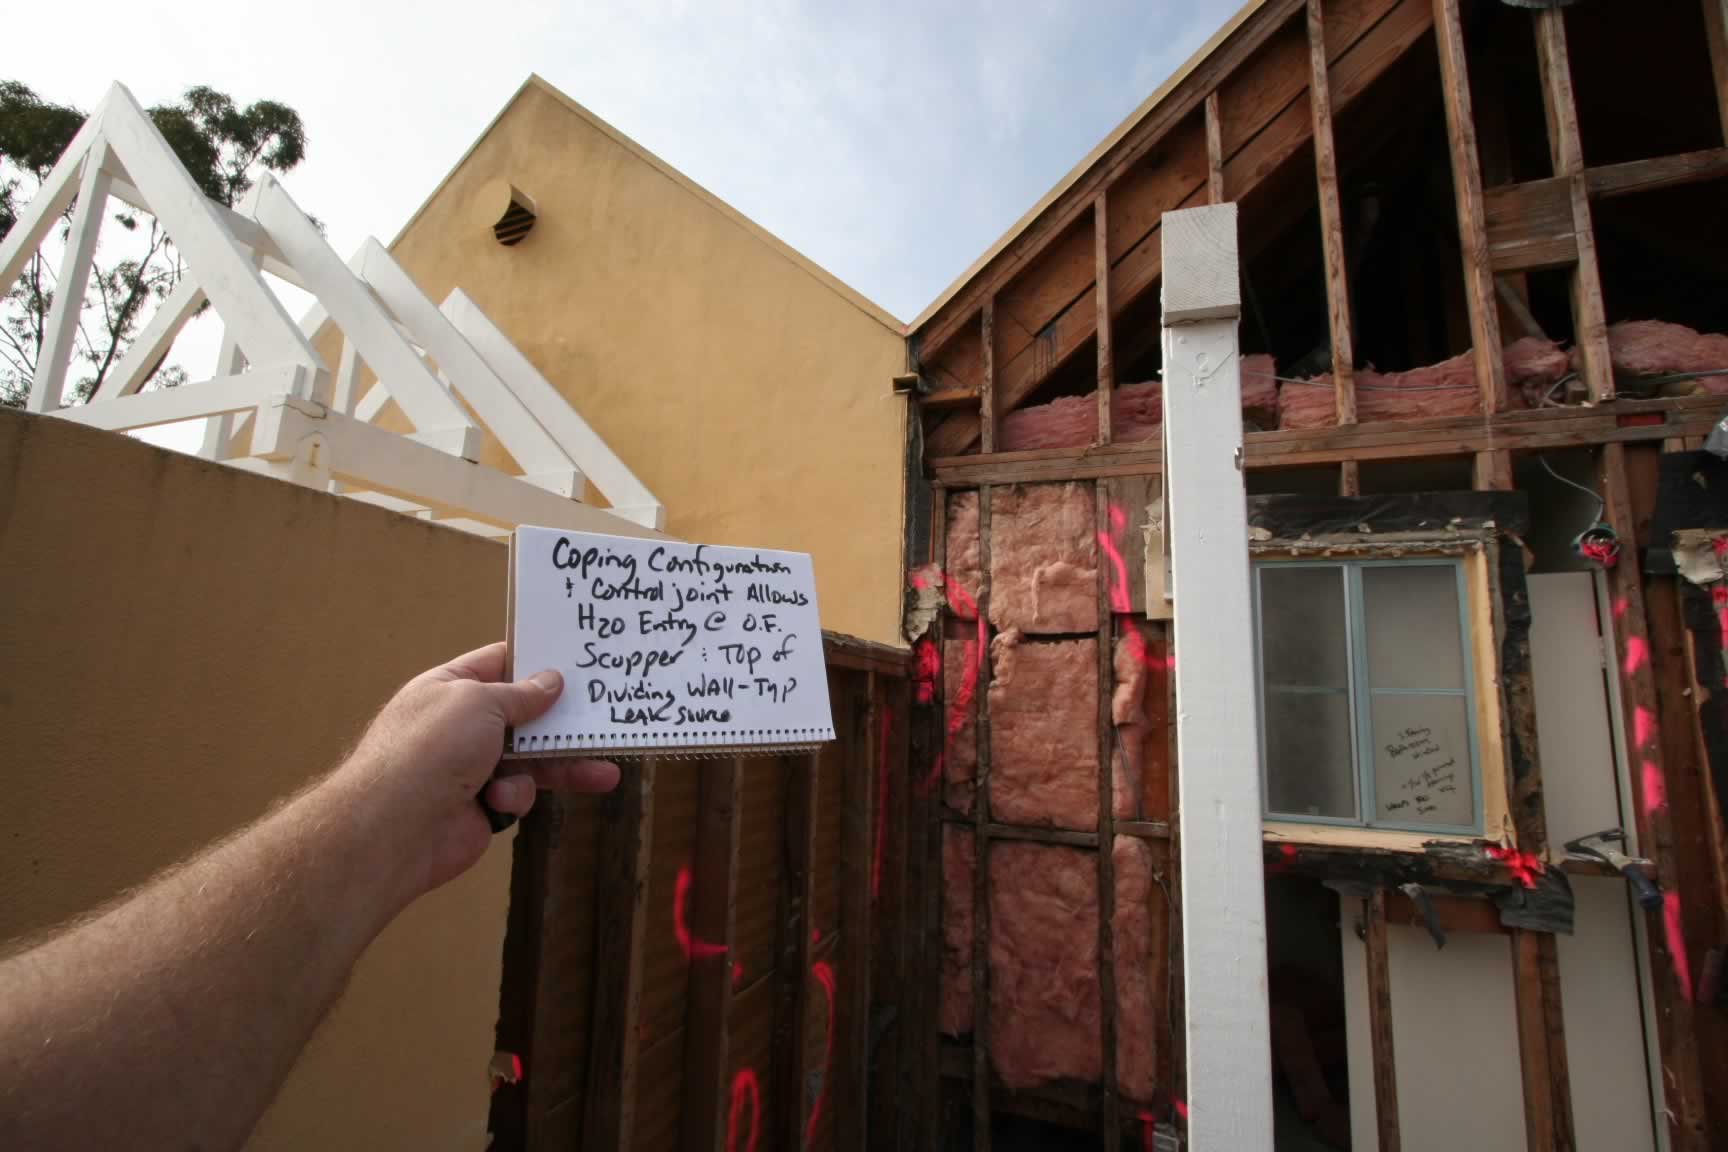 Coping Configuration
& Control joint Allows
H2O Entry @ O.F.
Scupper & Top of
Dividing Wall-Typ
Leak Source